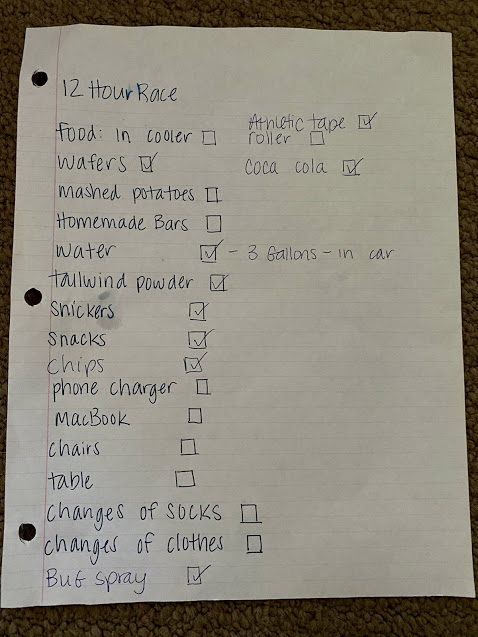 12 Hour Race
Food: in cooler ☐
wafers ☑
mashed potatoes ☐
Homemade Bars ☐
water ☑ - 3 Gallons - in car
tailwind powder ☑
snickers ☑
snacks ☑
chips ☑
phone charger ☐
MacBook ☐
chairs ☐
table ☐
changes of socks ☐
changes of clothes ☐
Bug spray ☑
Athletic tape ☑
roller ☐
coca cola ☑